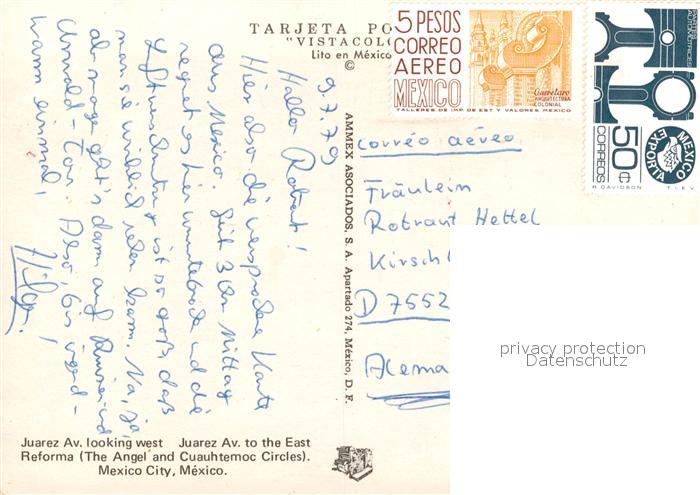 TARJETA PO
"VISTACOLO
Lito en México
©
5 PESOS
CORREO
AEREO
MEXICO
Querétaro
ARQUITECTURA
COLONIAL
TALLERES DE IMP. DE EST. Y VALORES MEXICO
PARTES
AUTOMOTRICES
50¢
CORREOS
MEXICO
EXPORTA
R. DAVIDSON
T.I.E.V.
9.7.79
Hallo Rotraut!
Hier also die versprochene Karte
aus Mexico. Seit 3 Uhr Mittag
regnet es hier ununterbrochen und die
Luftverschmutzung ist so groß, daß
man sie wirklich sehen kann. Na, ja,
ab morgen geht's dann auf
Umwelt-Tour. Also, bis irgend-
wann einmal,
Helga!
AMMEX ASOCIADOS, S. A. Apartado 274, México, D. F.
correo aéreo
Fräulein
Rotraut Hettel
Kirsch
D 7552
Alema
privacy protection
Datenschutz
Juarez Av. looking west Juarez Av. to the East
Reforma (The Angel and Cuauhtemoc Circles).
Mexico City, México.